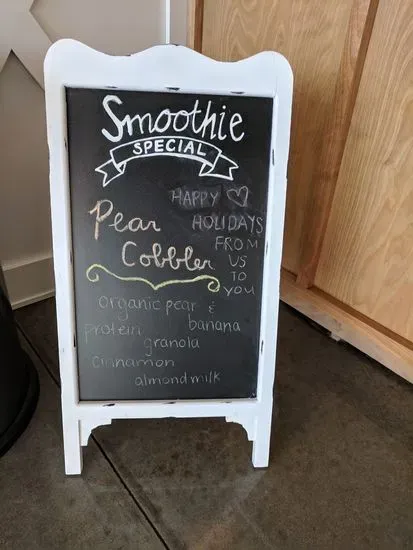 Smoothie
SPECIAL
HAPPY ♡
HOLIDAYS
FROM
US
TO
YOU
Pear
Cobbler
organic pear &
protein banana
granola
cinnamon
almond milk